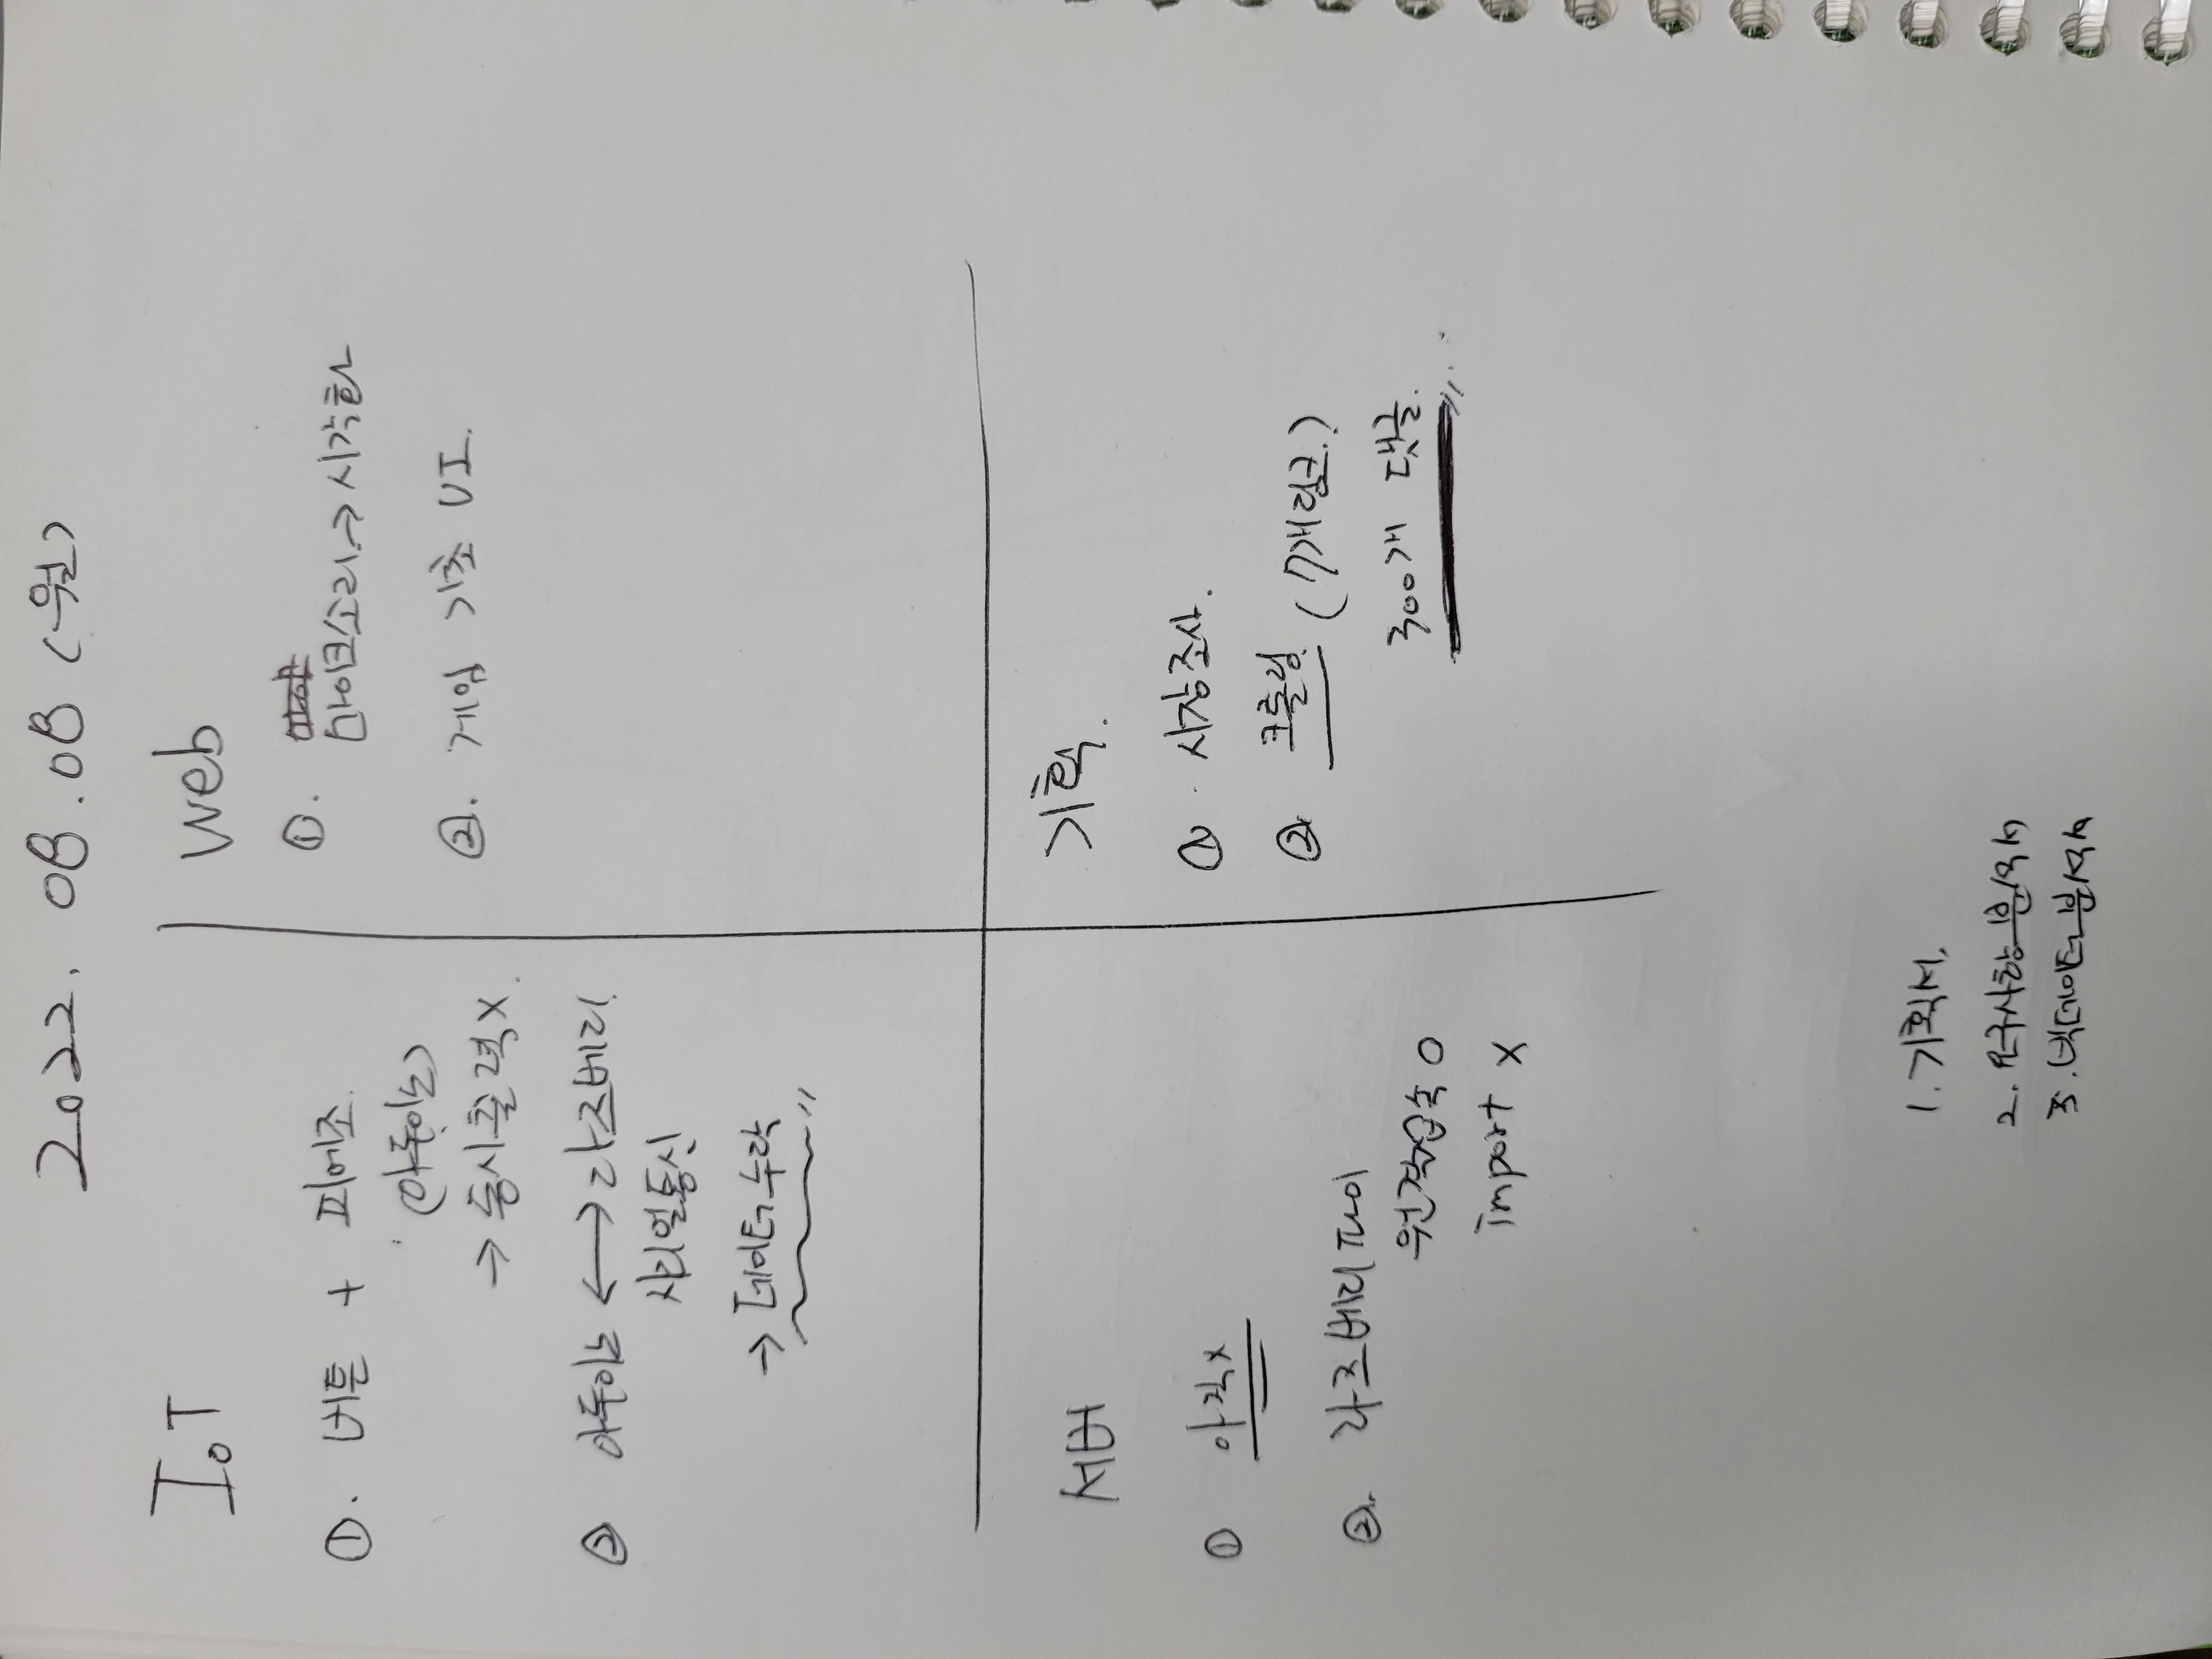 2022. 08.08 (월)
IoT
①. 버튼 + 피에조.
(아두이노)
→ 동시출력 X.
② 아두이노 ↔ 라즈베리.
시리얼통신
→ 데이터 누락
Web
①.
마이크소리 → 시각화
②. 게임 기초 UI.
서버
① 아직 X
②. 라즈베리 파이
원격접속 O
import X
기획.
① 시장조사.
② 크롤링. (7개링크.)
300개 댓글.
1. 기획서.
2. 요구사항 분석서
3. 빅데이터 분석서